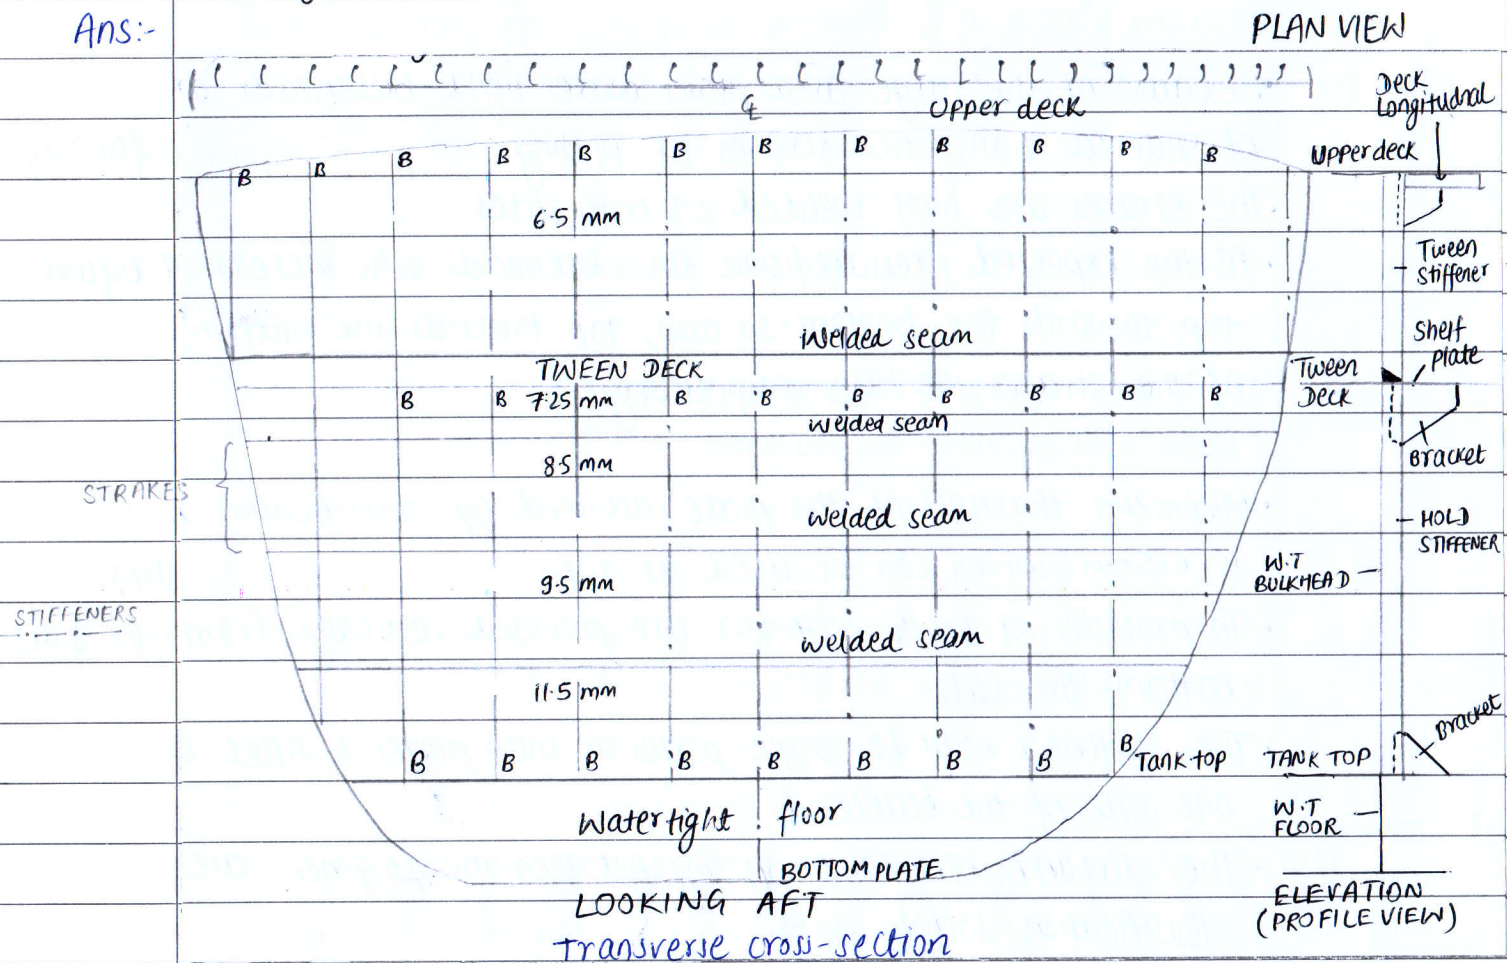 Ans:-
PLAN VIEW
℄ Upper deck
Deck Longitudnal
B B B B B B B B B B B B
Upperdeck
6.5 mm
Tween Stiffener
Welded seam
Shelf Plate
TWEEN DECK
Tween Deck
B B 7.25 mm B B B B B B B
welded seam
Bracket
8.5 mm
STRAKES
Welded seam
HOLD STIFFENER
W.T BULKHEAD
9.5 mm
STIFFENERS
Welded seam
11.5 mm
Bracket
B B B B B B B B B Tank top
TANK TOP
Watertight floor
W.T FLOOR
BOTTOM PLATE
LOOKING AFT
ELEVATION
(PROFILE VIEW)
Transverse cross-section